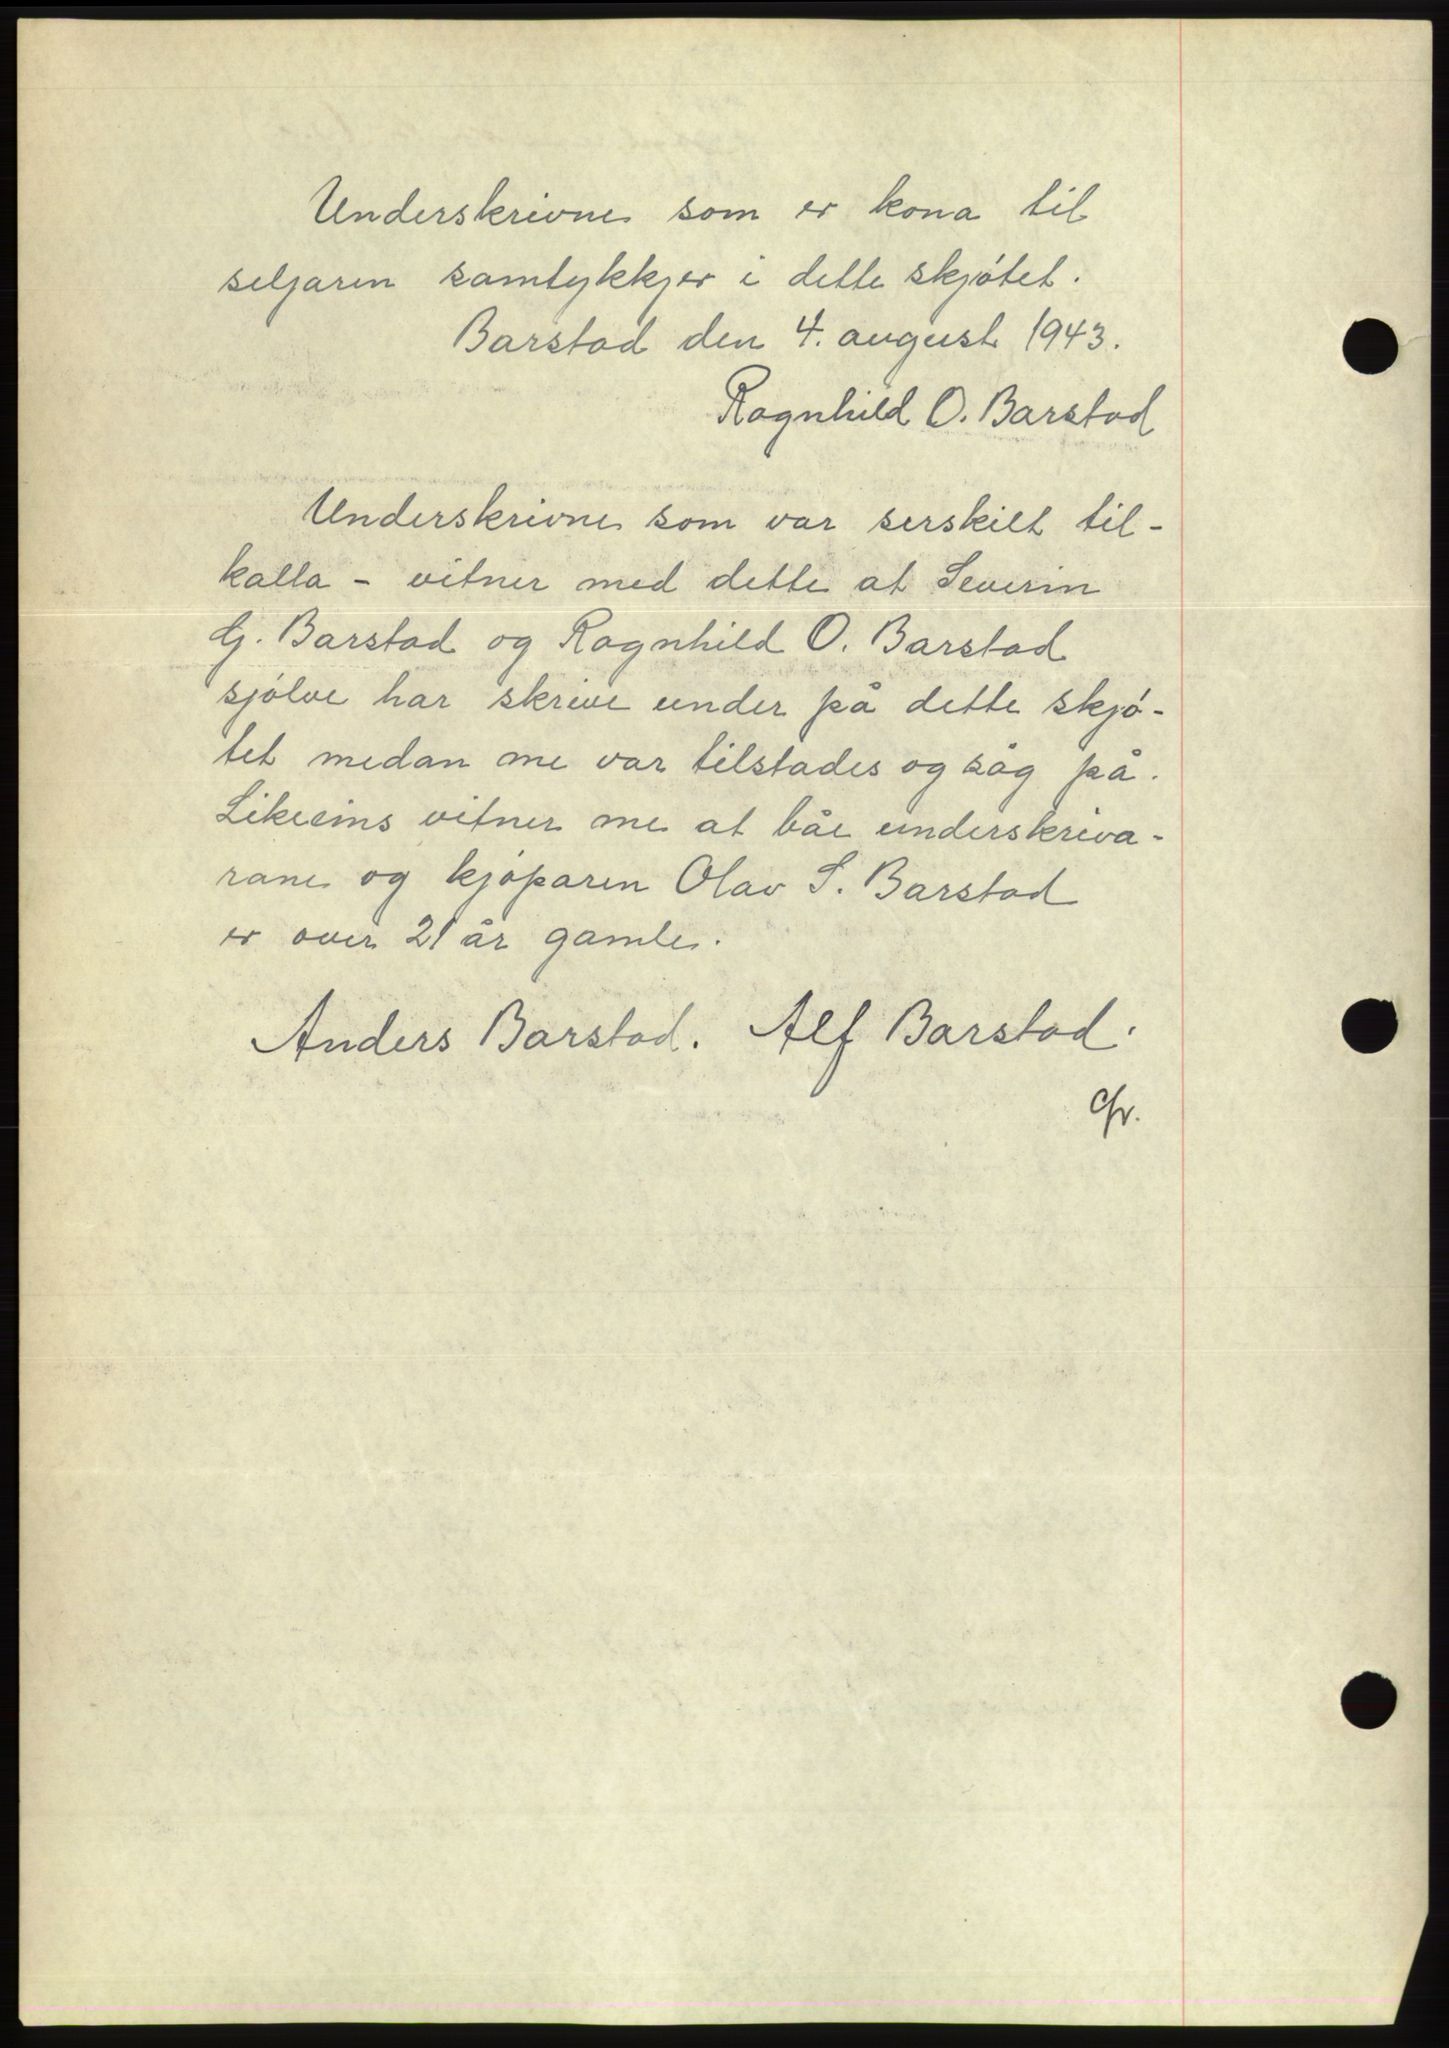 Underskrivne som er kona til
seljaren samtykkjer i dette skjøtet.
Barstad den 4. august 1943.
Ragnhild O. Barstad
Underskrivne som var serskilt til-
kalla - vitner med dette at Severin
G. Barstad og Ragnhild O. Barstad
sjølve har skrive under på dette skjø-
tet medan me var tilstades og såg på.
Likeeins vitner me at båe underskriva-
rane og kjøparen Olav S. Barstad
er over 21 år gamle.
Anders Barstad. Alf Barstad.